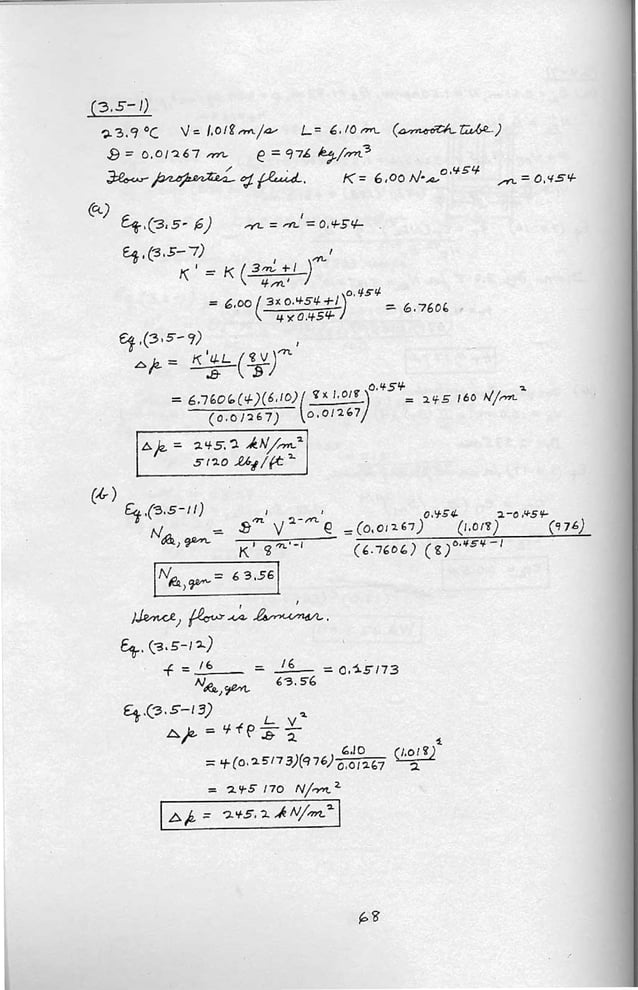 (3.5-1)
23.9 °C V = 1.018 m/s L = 6.10 m (smooth tube)
D = 0.01267 m ρ = 976 kg/m³
Flow properties of fluid. K = 6.00 N·s^0.454 n = 0.454
(a)
Eq.(3.5-6) n = n' = 0.454
Eq.(3.5-7)
K' = K ( (3n' + 1) / 4n' )^n'
= 6.00 ( (3 x 0.454 + 1) / (4 x 0.454) )^0.454 = 6.7606
Eq.(3.5-9)
Δp = (K'4L / D) (8V / D)^n'
= (6.7606(4)(6.10) / (0.01267)) (8 x 1.018 / 0.01267)^0.454 = 245 160 N/m²
Δp = 245.2 kN/m²
5120 lbf/ft²
(b)
Eq.(3.5-11)
N_Re,gen = D^n' V^(2-n') ρ / (K' 8^(n'-1)) = (0.01267)^0.454 (1.018)^(2-0.454) (976) / ((6.7606) (8)^(0.454-1))
N_Re,gen = 63.56
Hence, flow is laminar.
Eq. (3.5-12)
f = 16 / N_Re,gen = 16 / 63.56 = 0.25173
Eq.(3.5-13)
Δp = 4fρ (L / D) (V² / 2)
= 4(0.25173)(976) (6.10 / 0.01267) ((1.018)² / 2)
= 245 170 N/m²
Δp = 245.2 kN/m²
68